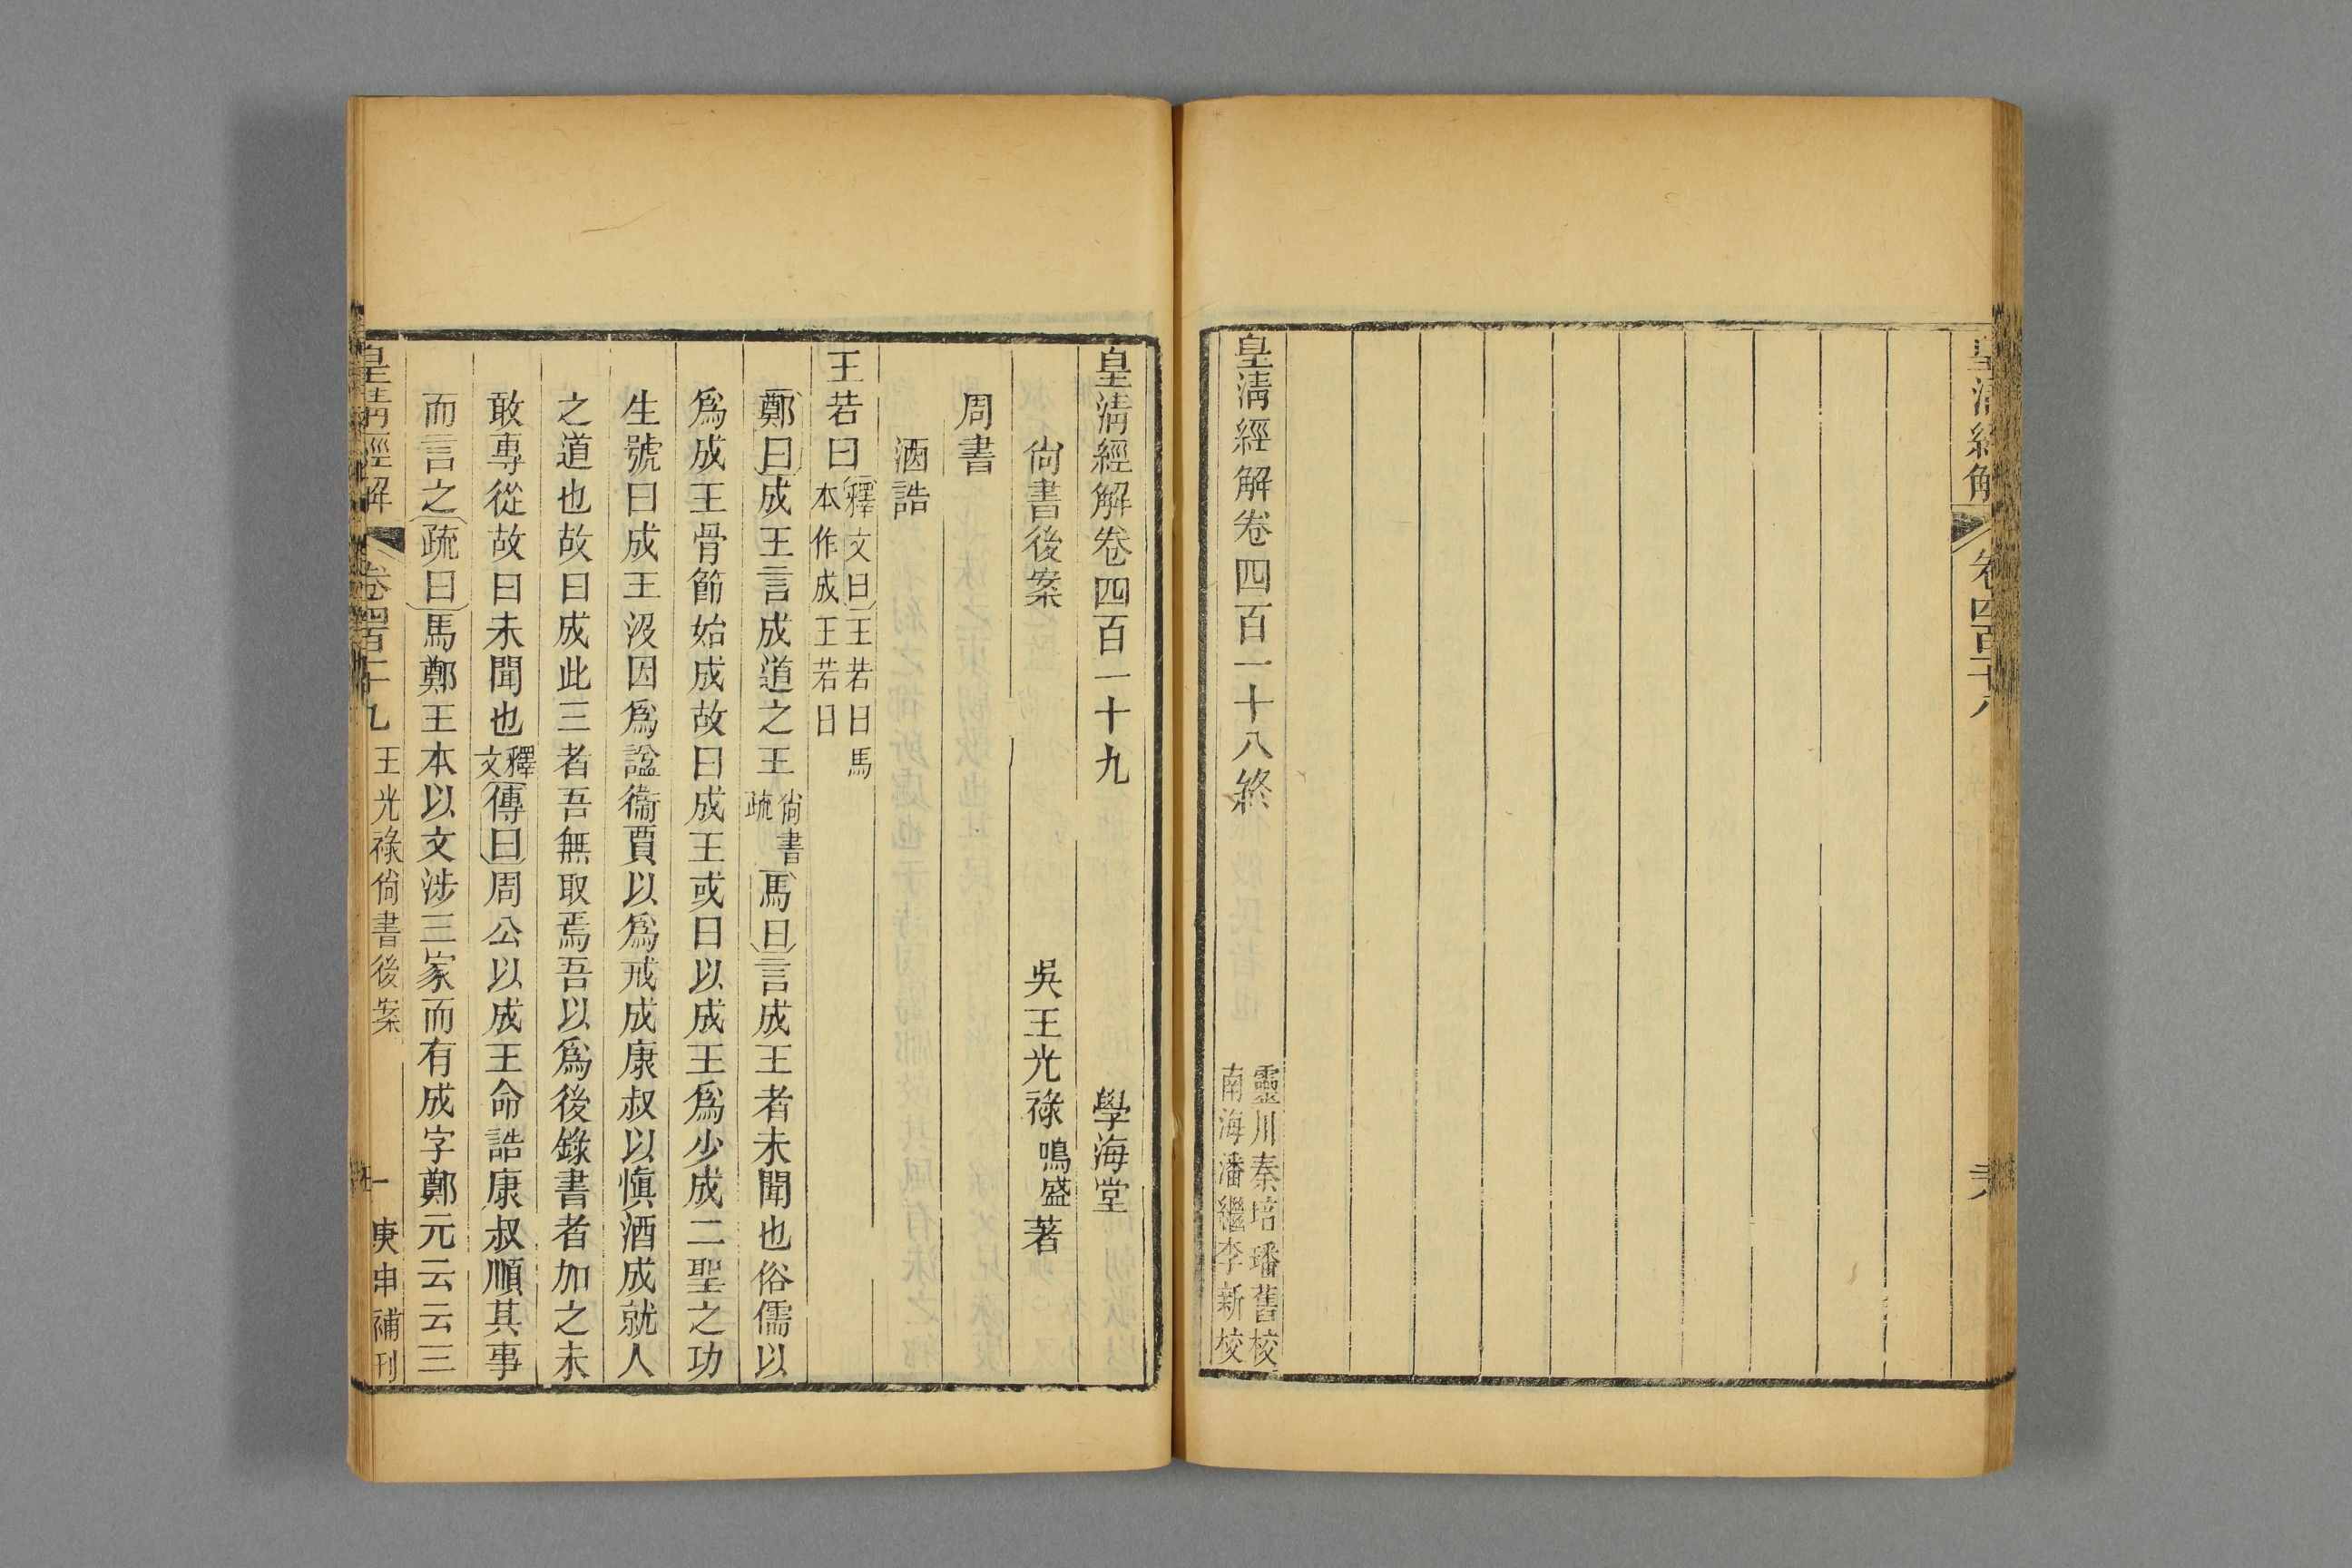 皇清經解
卷四百十八
皇清經解卷四百一十八終
靈川秦培璠舊校
南海潘繼李新校
皇清經解卷四百一十九
學海堂
尙書後案
吳王光祿鳴盛著
周書
酒誥
王若曰釋文曰王若曰馬
本作成王若曰
鄭曰成王言成道之王尙書
疏馬曰言成王者未聞也俗儒以
爲成王骨節始成故曰成王或曰以成王爲少成二聖之功
生號曰成王没因爲諡衞賈以爲戒成康叔以愼酒成就人
之道也故曰成此三者吾無取焉吾以爲後錄書者加之未
敢專從故曰未聞也釋
文傳曰周公以成王命誥康叔順其事
而言之疏曰馬鄭王本以文涉三家而有成字鄭元云云三
皇淸經解
卷四百十九
王光祿尙書後案
一
庚申補刊